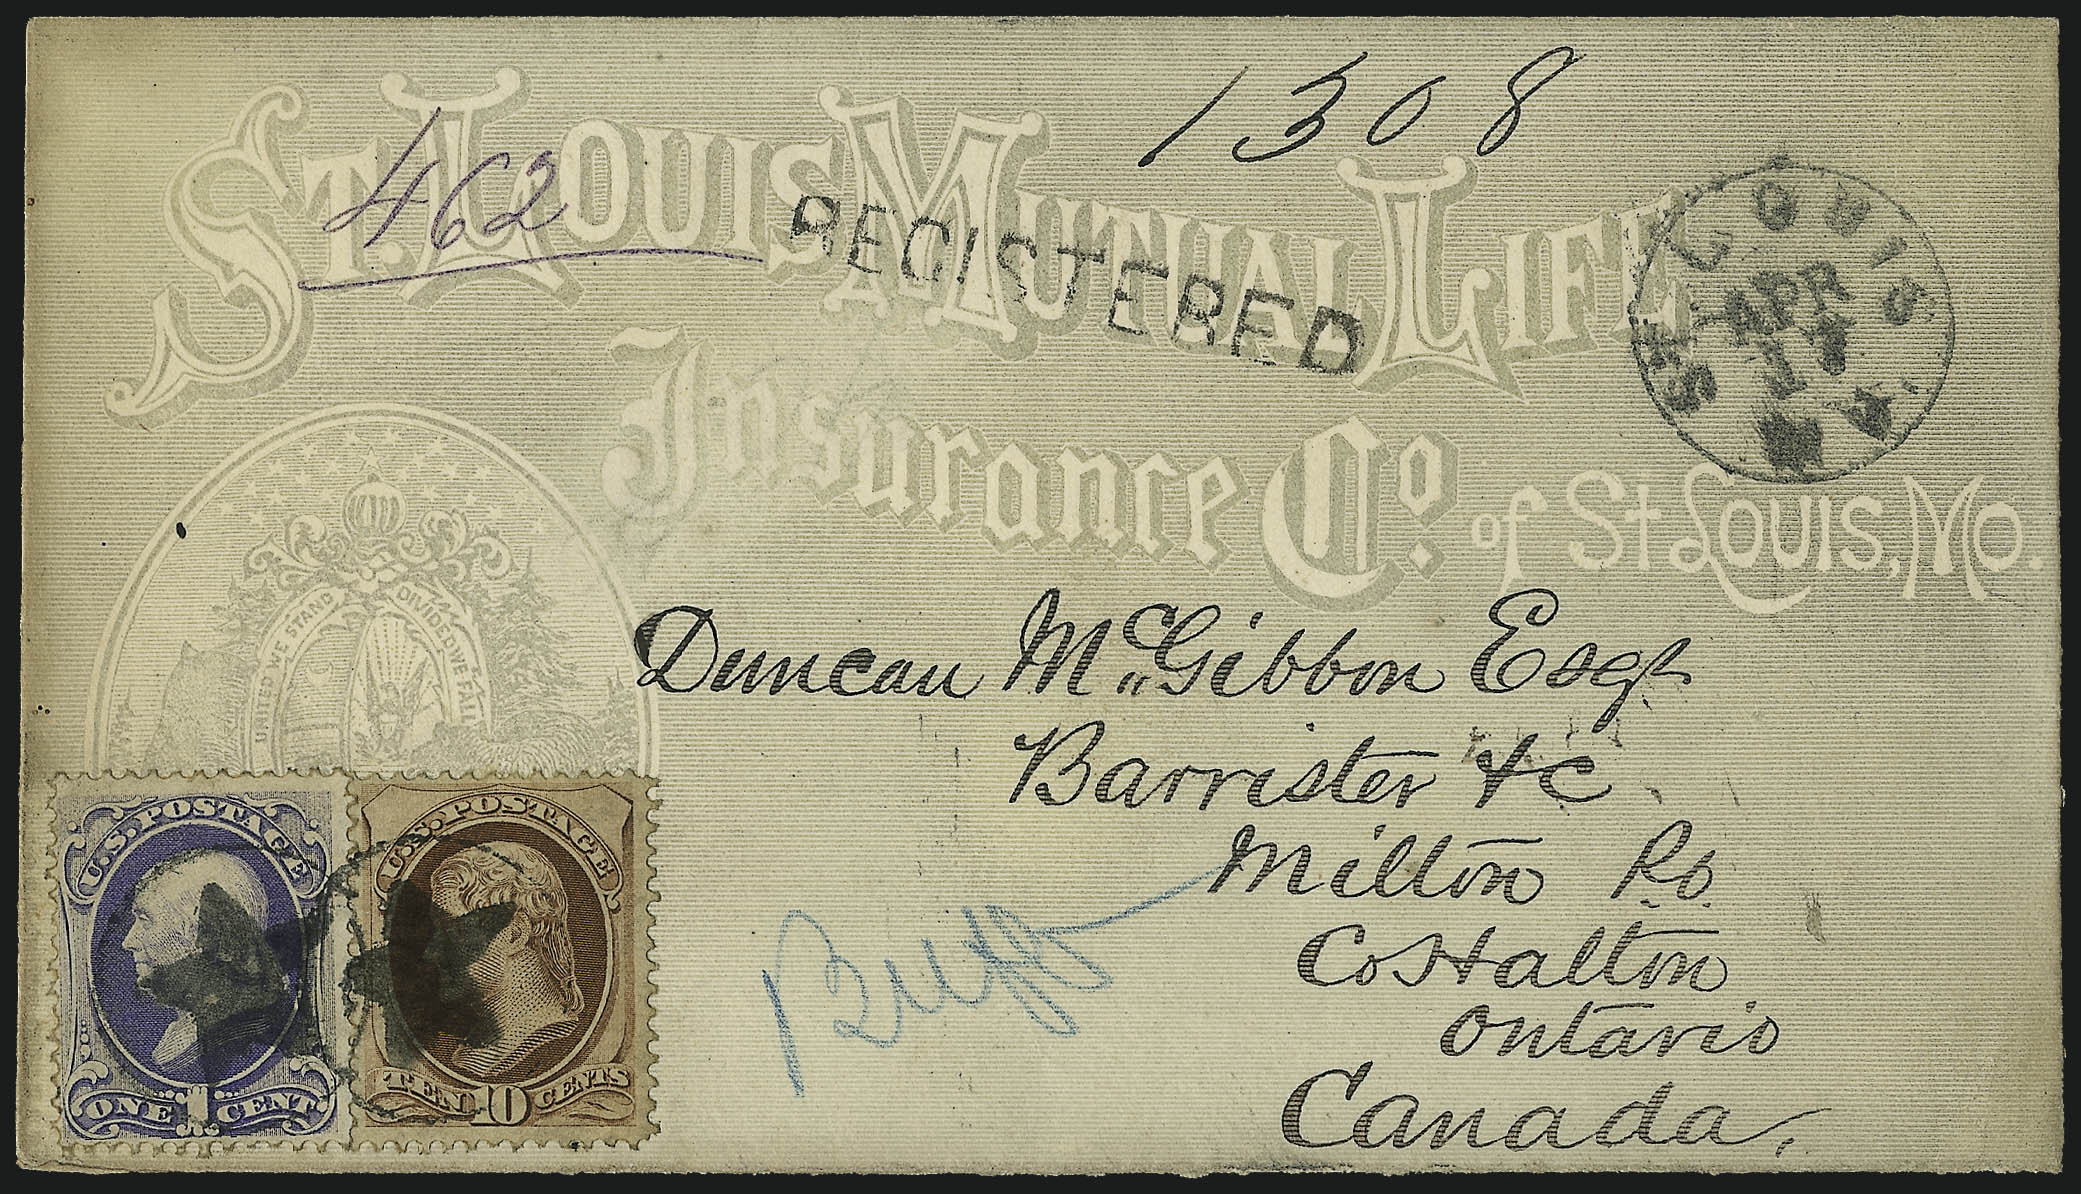 1308
462
ST. LOUIS MUTUAL LIFE
REGISTERED
ST. LOUIS
APR
17
Insurance Co. of St. Louis, Mo.
UNITED WE STAND DIVIDED WE FALL
Duncan McGibbon Esqr
Barrister &c
Milton P.O.
Co Halton
Ontario
Canada.
U.S. POSTAGE
ONE 1 CENT
U.S. POSTAGE
TEN 10 CENTS